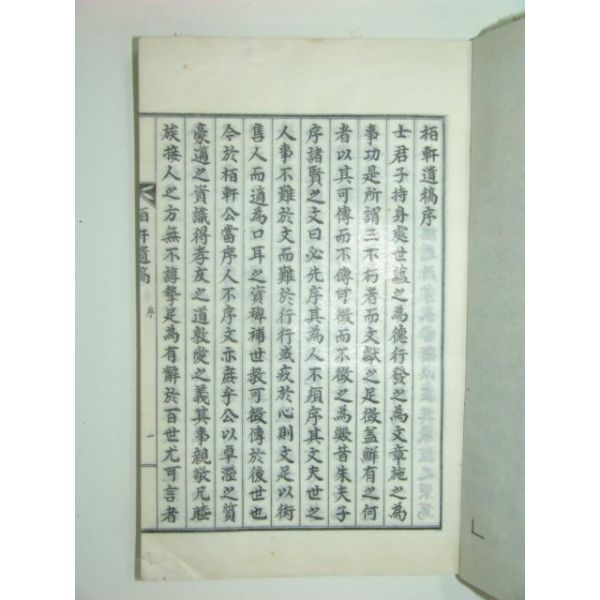 栢軒遺稿序
士君子持身處世蘊之為德行發之為文章施之為
事功是所謂三不朽者而文獻之足徵盖鮮有之何
者以其可傳而不傳可徵而不徵之為歟昔朱夫子
序諸賢之文曰必先序其為人不須序其文夫世之
人事不難於文而難於行行或疚於心則文足以衒
售人而適為口耳之資稗補世教可徵傳於後世也
今於栢軒公當序人不序文亦庶乎公以卓瀅之質
豪邁之資識得孝友之道敦愛之義其事親敬兄睦
族接人之方無不諄摯足為有辭於百世尤可言者
栢軒遺稿 序 一